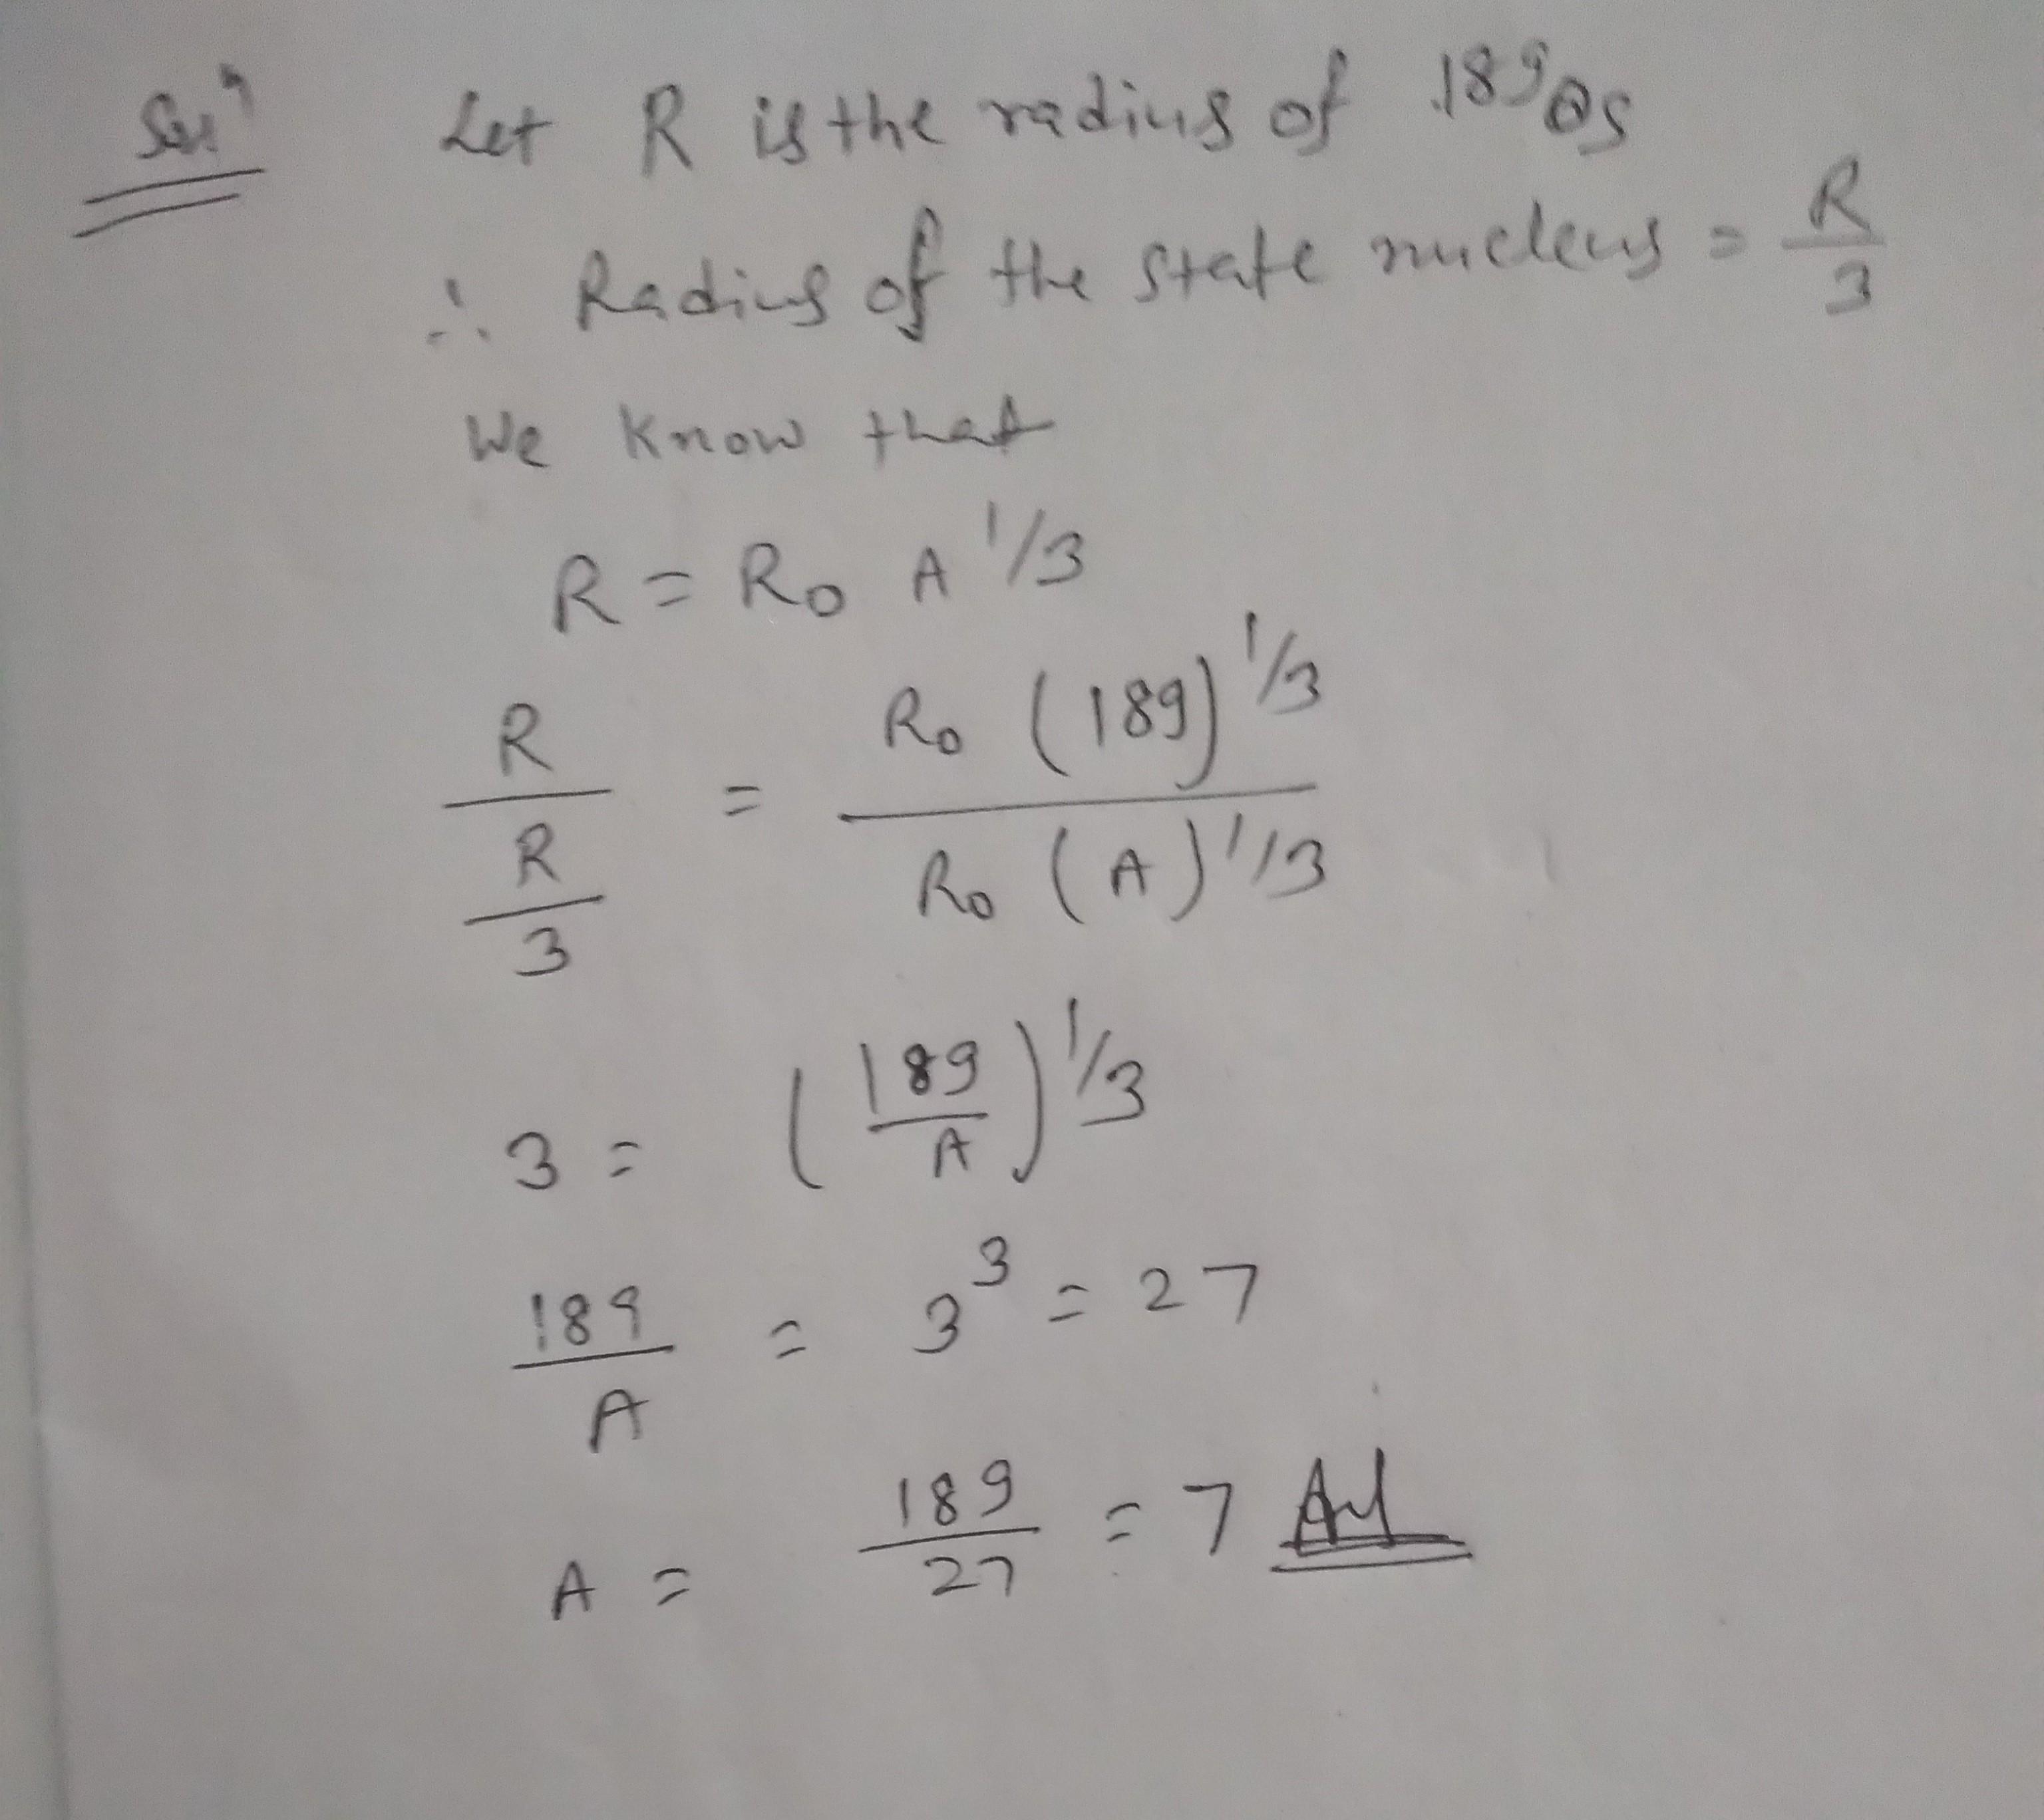 Solⁿ Let R is the radius of ¹⁸⁹Os
∴ Radius of the state nucleus = R/3
We know that
R = R₀ A^1/3
R/(R/3) = R₀ (189)^1/3 / R₀ (A)^1/3
3 = (189/A)^1/3
189/A = 3³ = 27
A = 189/27 = 7 Ans